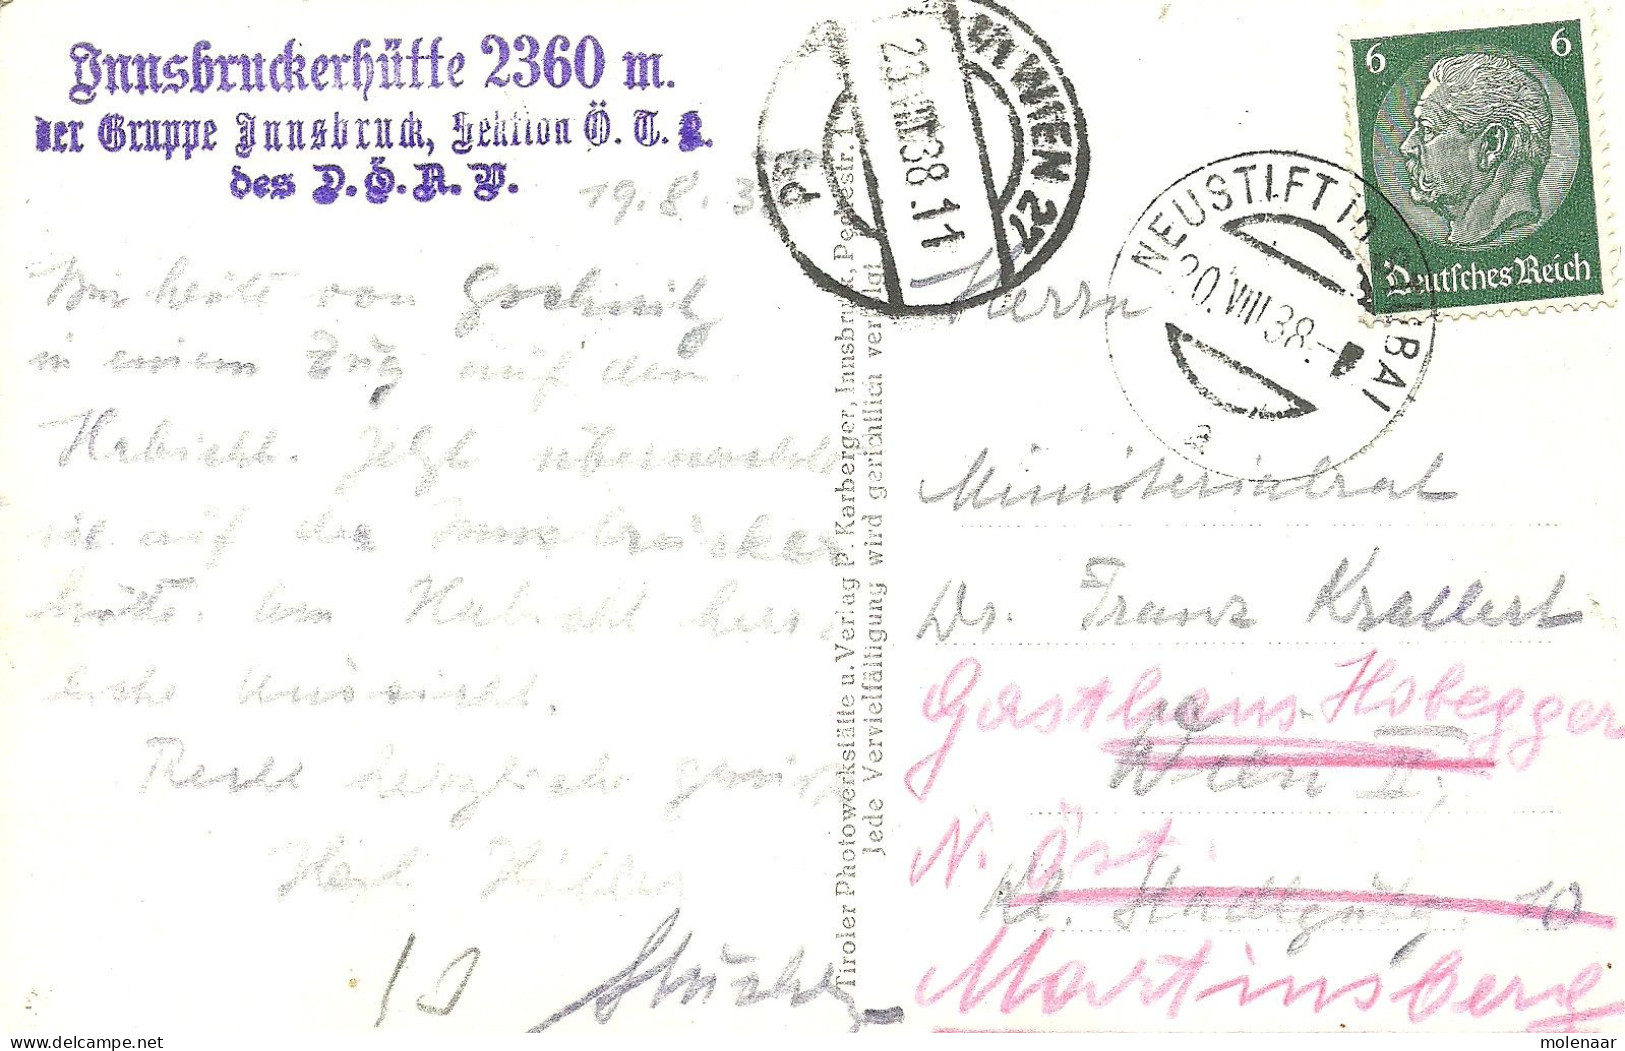 Innsbruckerhütte 2360 m.
der Gruppe Innsbruck, Sektion Ö. T. K.
des D. Ö. A. V.
19. 8. 3
Bin heute von Gschnitz
in einem Zug auf den
Habicht. Jetzt übernachte
ich auf der Innsbrucker
hütte. Am Habicht herr-
liche Aussicht.
Recht herzliche Grüße
Heil Hitler
Tiroler Photowerkstätte u. Verlag P. Karberger, Innsbruck, Pechestr. 1
Jede Vervielfältigung wird gerichtlich verfolgt
WIEN 27
23.VIII.38.11
NEUSTIFT im STUBAI
20.VIII.38
a
6 6
Deutsches Reich
Herrn
Ministerialrat
Dr. Franz Krallert
Gasthaus Hobegger
Wien II,
N. Öst.
Kl. Stadtgutg. 10
Martinsberg
molenaar